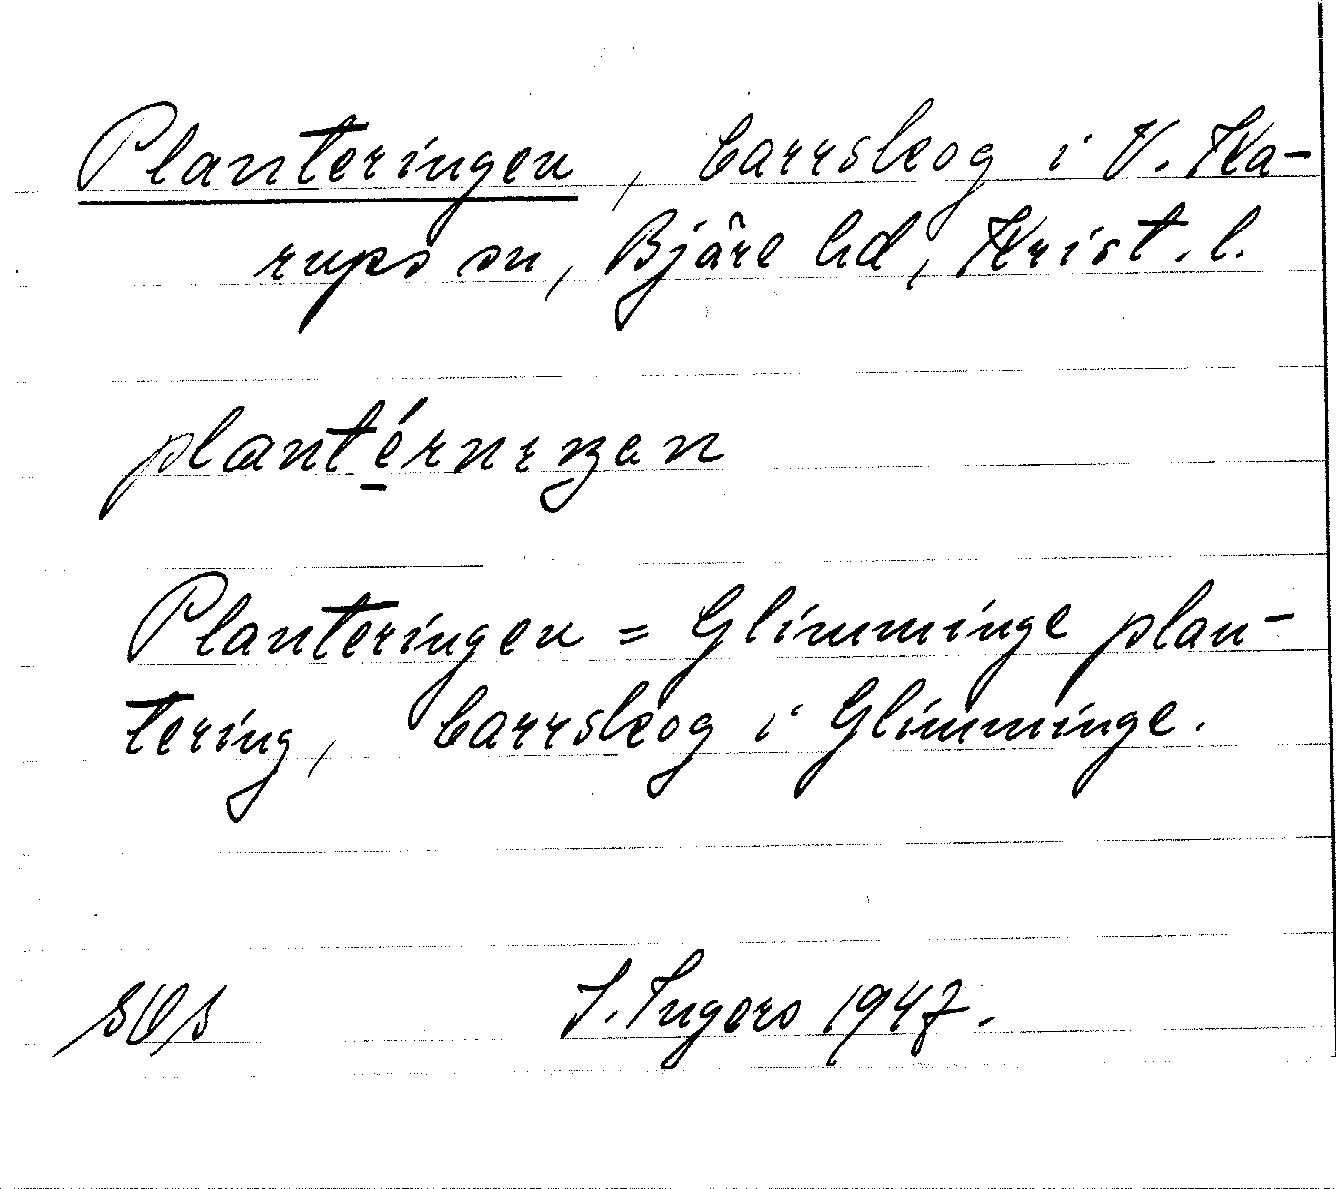 Planteringen, barrskog i V. Ka-
rups sn, Bjäre hd, Krist. l.
Planteringen = Glimminge plan-
tering, barrskog i Glimminge.
SOS I. Ingers 1947.